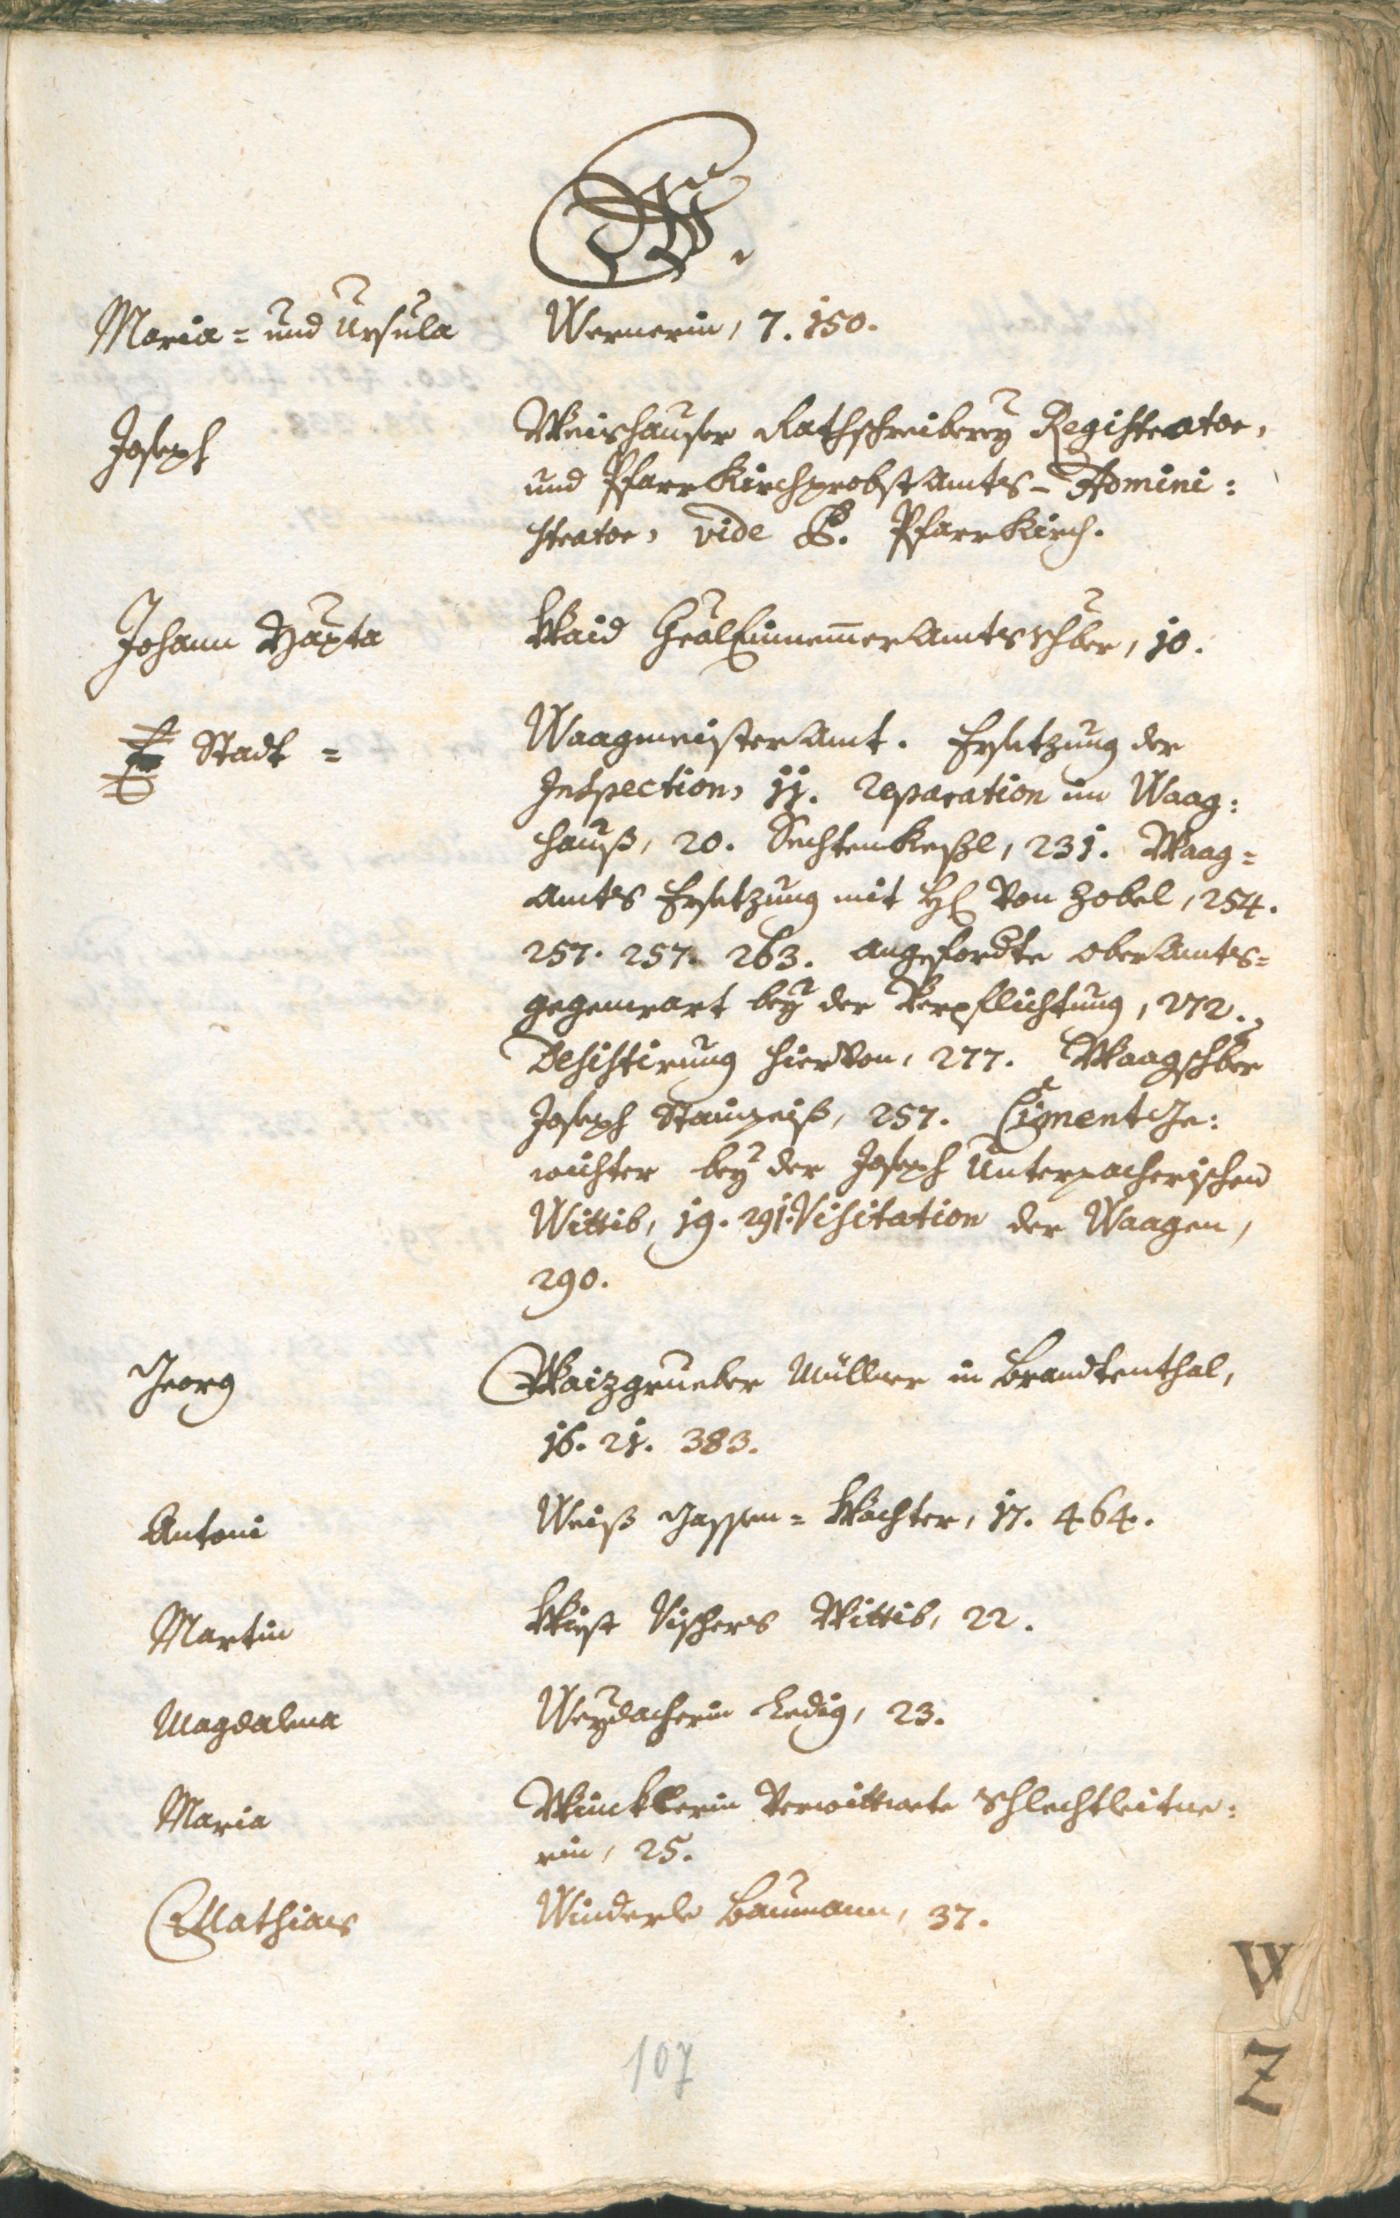 W.
Maria = und Ursula Wernerin, 7. 150.
Joseph Weishauser Rathschreiberey Registrator,
und PfarrKirchprobstAmts - Admini:
strator, vide P. PfarrKirch.
Johann Bapta Waid GralEinnemerAmtsschber, 10.
Stadt = WaagmeisterAmt. Ersetzung der
Inspection, 11. reparation im Waag:
hauß, 20. Sechtenkeßl, 231. Waag=
Amts Ersetzung mit H von Zobel, 254.
257. 257. 263. angeforderte OberAmts=
gegenwart bey der Verpflichtung, 272.
Desistirung hiervon, 277. Waagschber
Joseph 257. Ciment Ge:
wichter bey der Joseph Unterpacherischen
Wittib, 19. 291. Visitation der Waagen,
290.
Georg Waizgrueber Müllner in Brandtenthal,
16. 21. 383.
Antoni Weiß Gassen = Wachter, 17. 464.
Martin Wirst Vischers Wittib, 22.
Magdalena Weydacherin Ledig, 23.
Maria Wincklerin Verwittwete Schlechtleitne:
rin, 25.
Mathias Winderle Baumann, 37.
W
Z
107